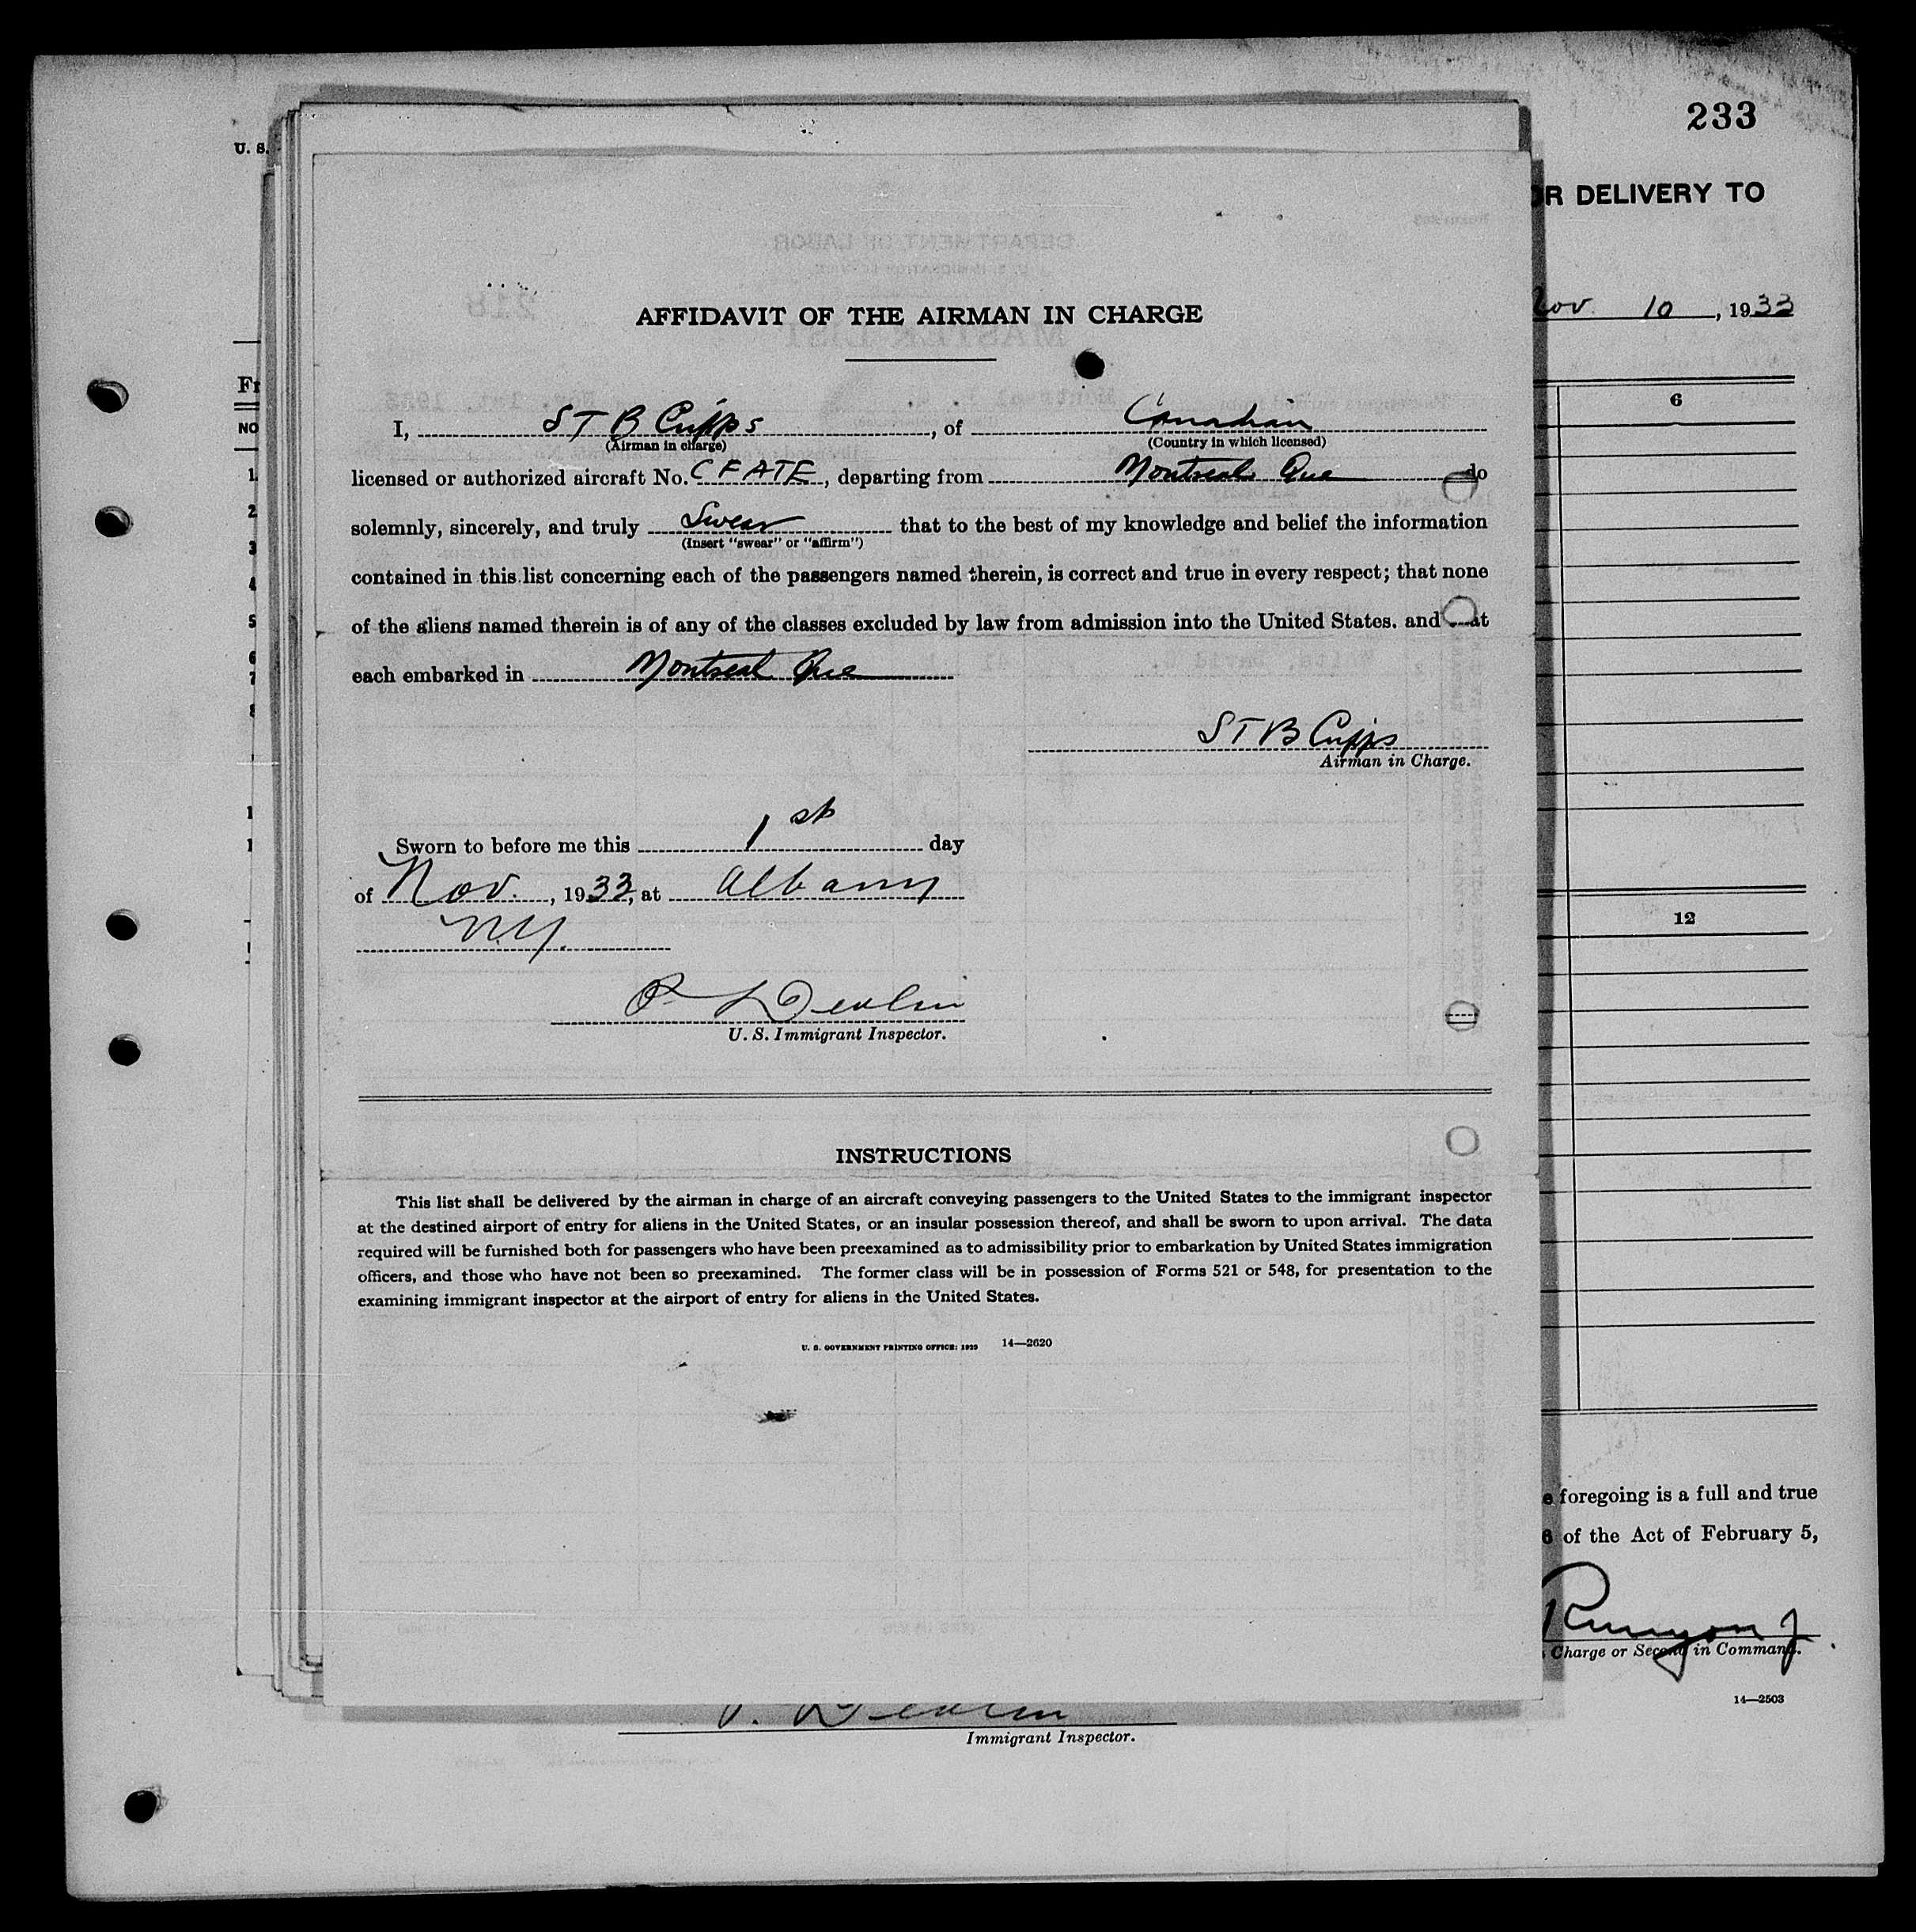 233
U. S.
OR DELIVERY TO
Nov. 10, 1933
AFFIDAVIT OF THE AIRMAN IN CHARGE
I, S T B Cripps, of Canadian
(Airman in charge) (Country in which licensed)
licensed or authorized aircraft No. CFATE, departing from Montreal Que do
solemnly, sincerely, and truly Swear that to the best of my knowledge and belief the information
(Insert "swear" or "affirm")
contained in this list concerning each of the passengers named therein, is correct and true in every respect; that none
of the aliens named therein is of any of the classes excluded by law from admission into the United States. and that
each embarked in Montreal Que
S T B Cripps
Airman in Charge.
Sworn to before me this 1st day
of Nov., 1933, at Albany
N.Y.
P Devlin
U. S. Immigrant Inspector.
INSTRUCTIONS
This list shall be delivered by the airman in charge of an aircraft conveying passengers to the United States to the immigrant inspector
at the destined airport of entry for aliens in the United States, or an insular possession thereof, and shall be sworn to upon arrival. The data
required will be furnished both for passengers who have been preexamined as to admissibility prior to embarkation by United States immigration
officers, and those who have not been so preexamined. The former class will be in possession of Forms 521 or 548, for presentation to the
examining immigrant inspector at the airport of entry for aliens in the United States.
U. S. GOVERNMENT PRINTING OFFICE: 1929 14—2620
Fr
NO
1
2
3
4
5
6
7
8
6
12
e foregoing is a full and true
6 of the Act of February 5,
Runyon J.
Charge or Second in Command.
14—2503
P. Devlin
Immigrant Inspector.